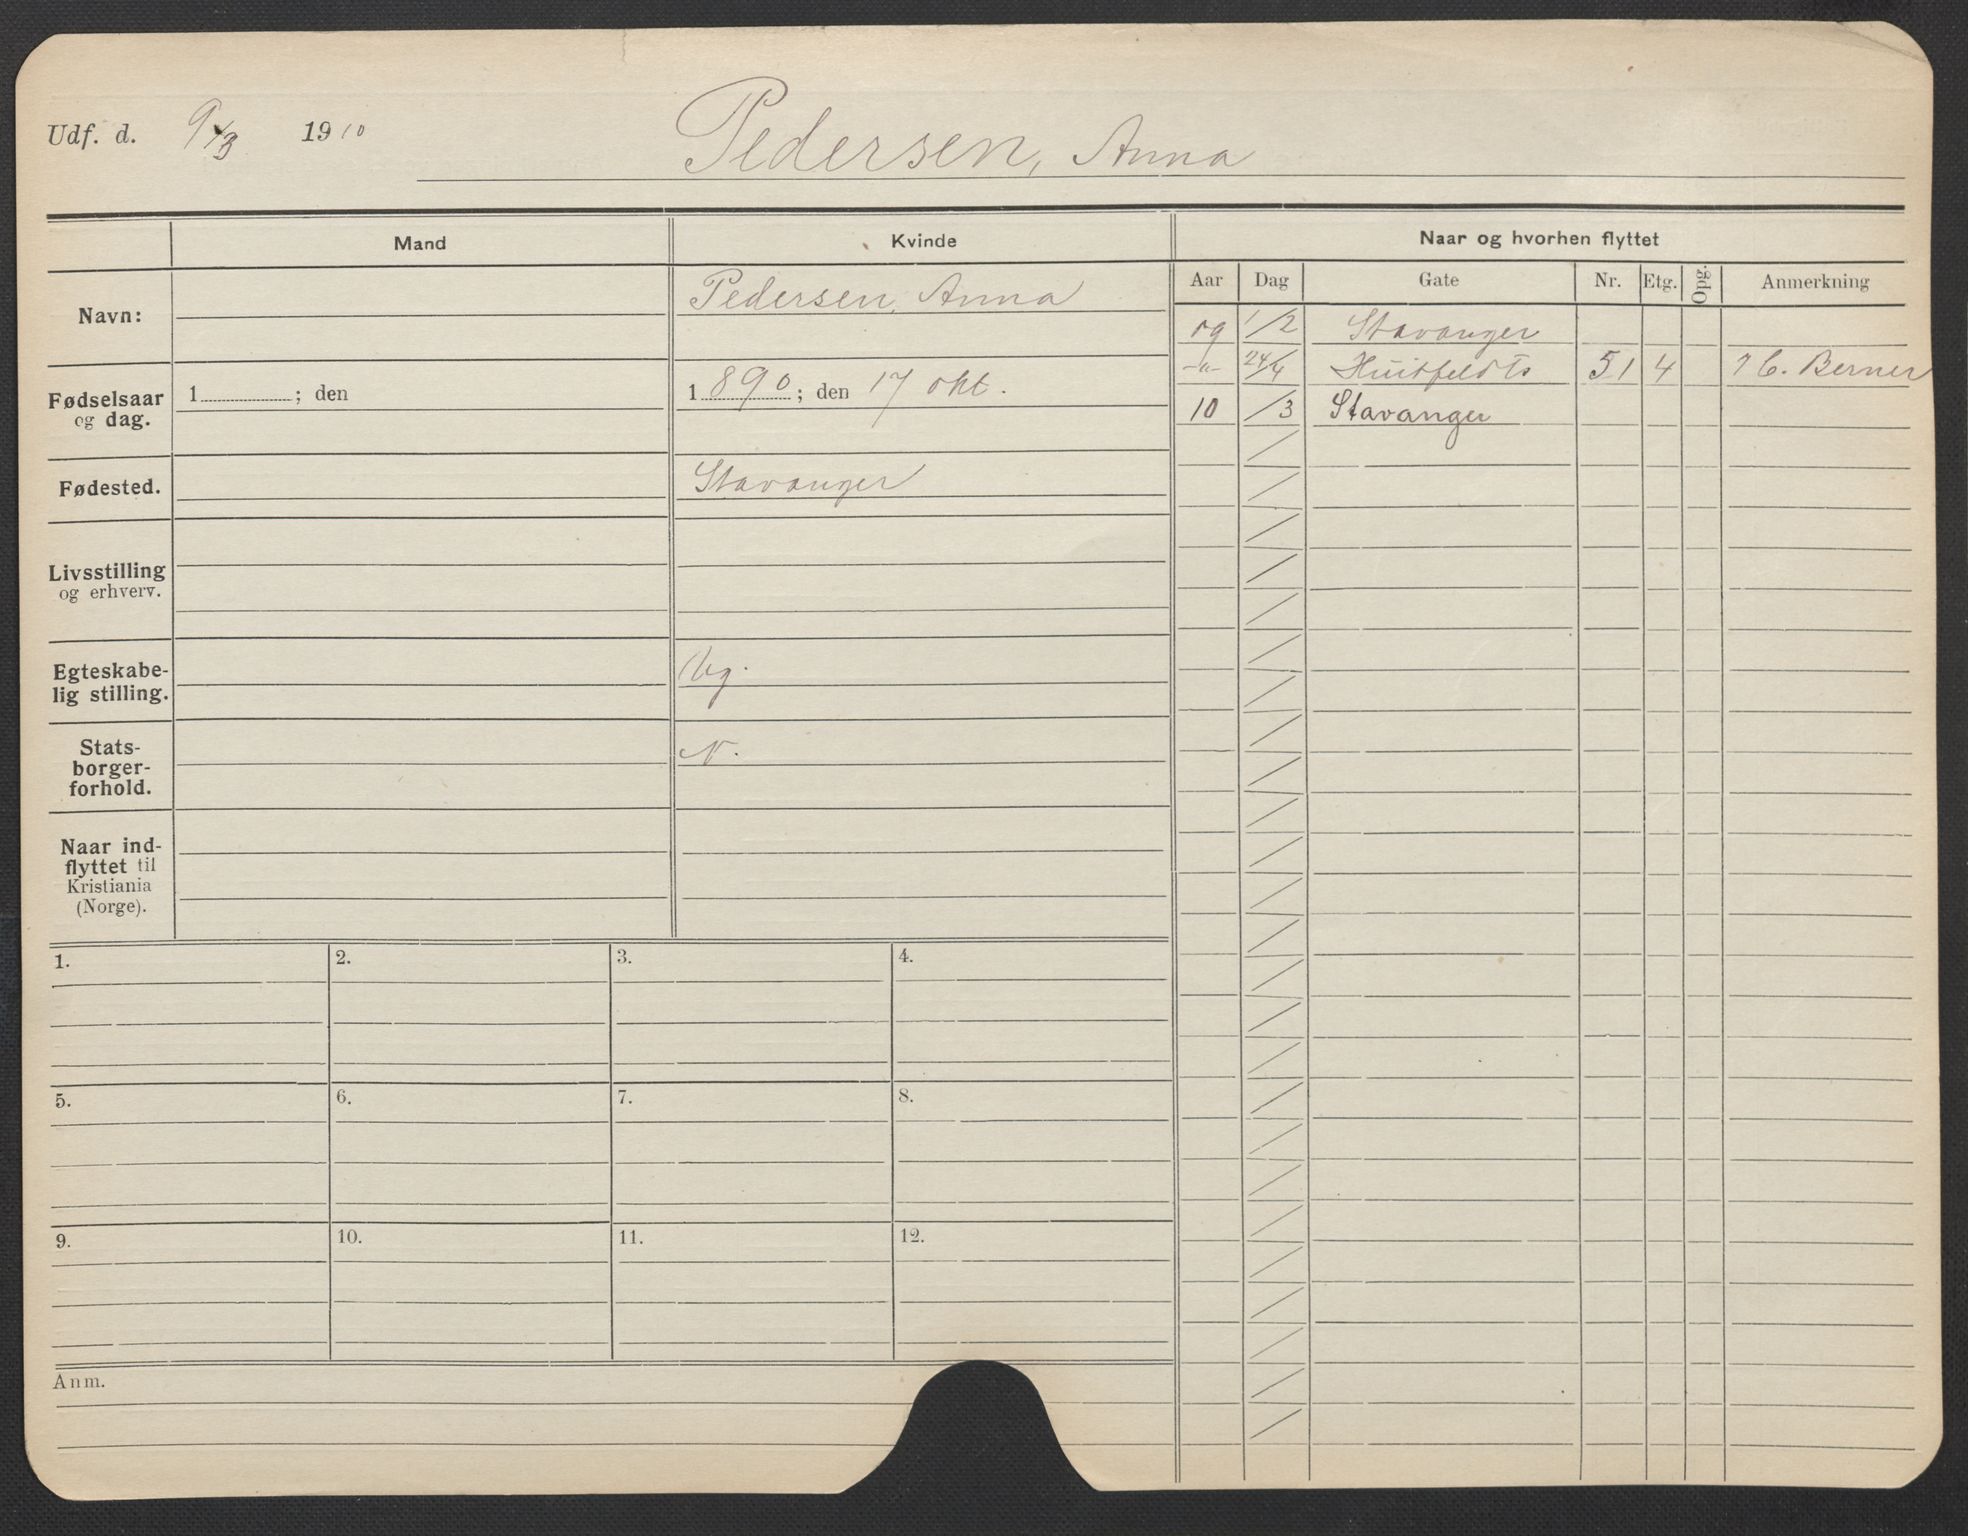 Udf. d. 9/3 1910 Pedersen, Anna
Mand Kvinde Naar og hvorhen flyttet
Aar Dag Gate Nr. Etg. Opg. Anmerkning
Navn: Pedersen, Anna
09 1/2 Stavanger
-"- 24/4 Huitfeldts 51 4 C. Berner
10 /3 Stavanger
Fødselsaar
og dag.
1 ; den 1890; den 17 okt.
Fødested. Stavanger
Livsstilling
og erhverv.
Egteskabe-
lig stilling.
Ug.
Stats-
borger-
forhold.
N.
Naar ind-
flyttet til
Kristiania
(Norge).
1. 2. 3. 4.
5. 6. 7. 8.
9. 10. 11. 12.
Anm.